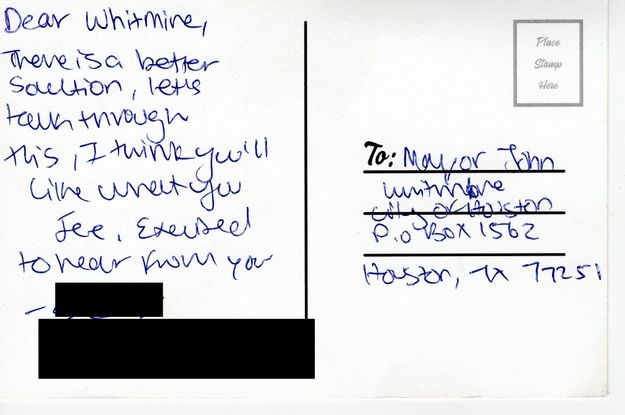 Dear Whitmire,
There is a better
Soultion, let's
talk through
this, I think you'll
like what you
see. Excited
to hear from you
-
Place
Stamp
Here
To: Mayor John
Whitmire
City of Houston
P.O BOX 1562
Houston, TX 77251